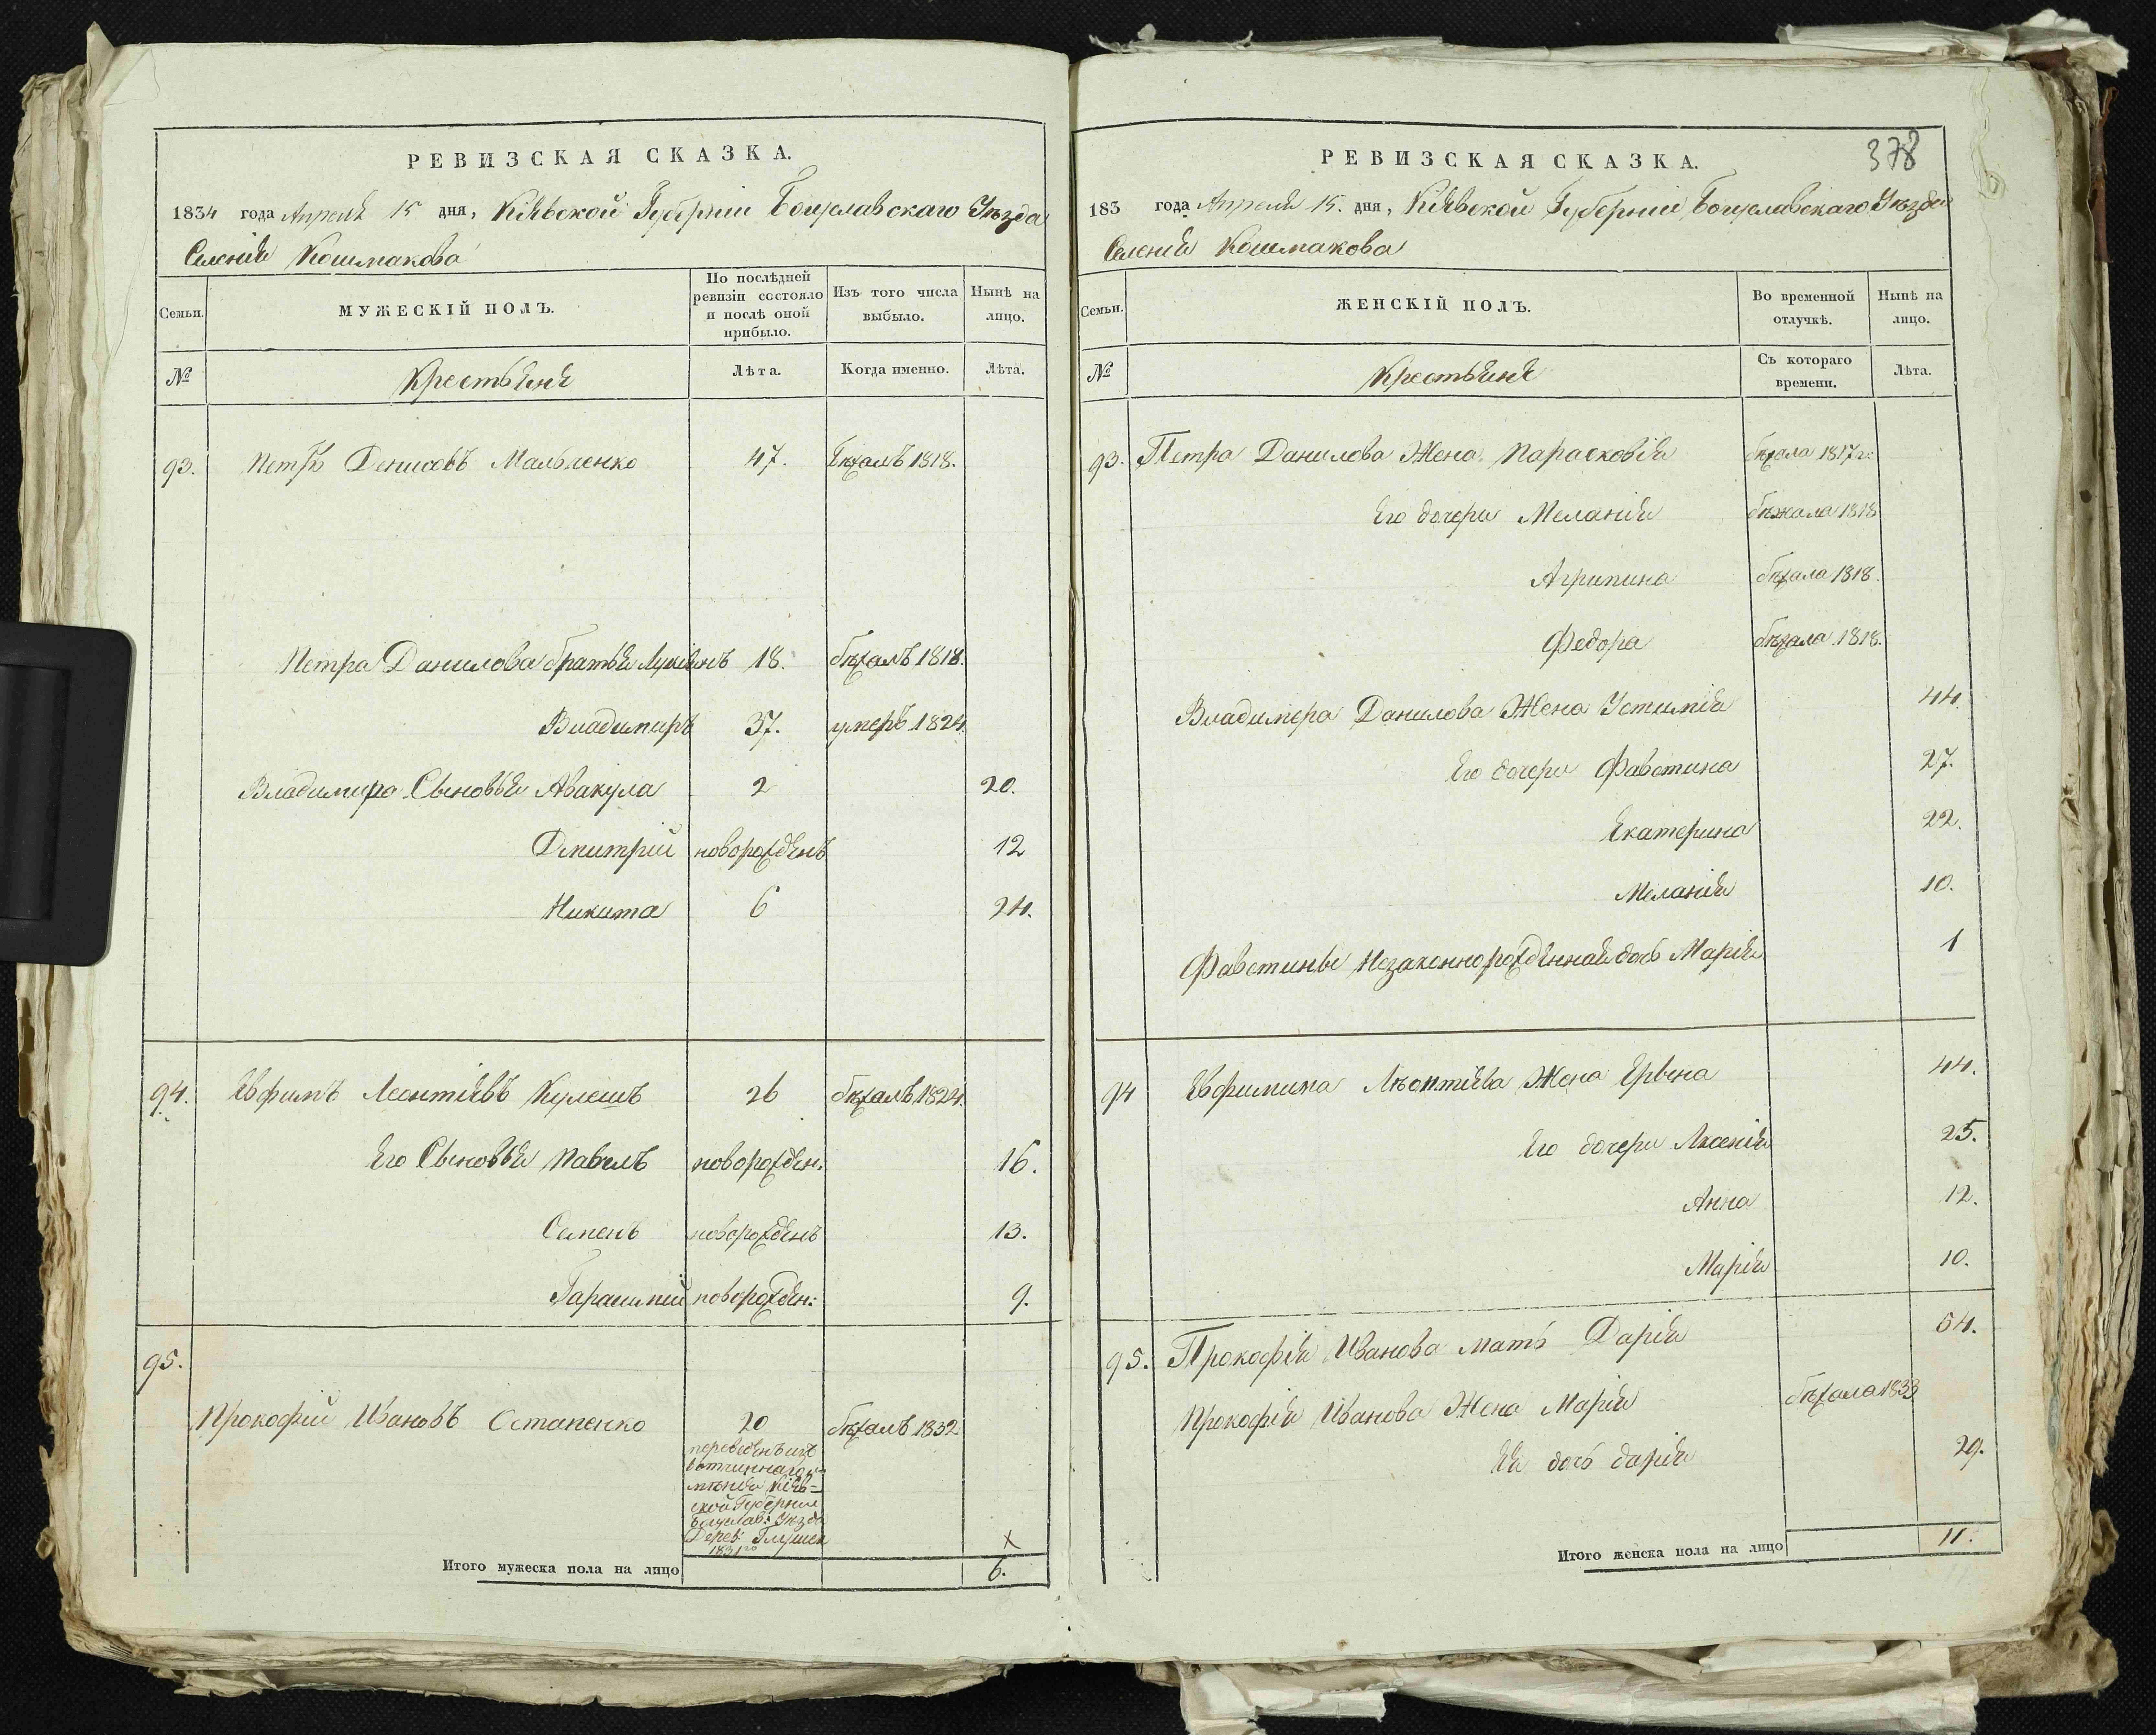 РЕВИЗСКАЯ СКАЗКА.
1834 года Апреля 15 дня, Кіевской Губерніи Богуславскаго Уѣзда
Селенія Кошмакова
Семьи.
МУЖЕСКІЙ ПОЛЪ.
По послѣдней ревизіи состояло и послѣ оной прибыло.
Изъ того числа выбыло.
Нынѣ на лицо.
№
Крестьяне
Лѣта.
Когда именно.
Лѣта.
93. Петръ Денисовъ Мальченко 47. бѣжалъ 1818.
Петра Данилова братья Лукіянъ 18. бѣжалъ 1818.
Владимиръ 37. умеръ 1824.
Владимира Сыновья Авакула 2 20.
Дмитрій новорожденъ 12
Никита 6 24.
94. Евфимъ Леонтіевъ Кулешъ 26 бѣжалъ 1824.
Его Сыновья Павелъ новорожден: 16.
Семенъ новорожденъ 13.
Гарасимій новорожден: 9.
95.
Прокофій Ивановъ Остапенко 20 бѣжалъ 1832
переведенъ изъ
вотчиннаго и-
мѣнія Кіев=
ской Губерніи
Богуслав: Уѣзда
Дерев:
1831го
х
Итого мужеска пола на лицо 6.
378
РЕВИЗСКАЯ СКАЗКА.
183 года Апреля 15. дня, Кіевской Губерніи Богуславскаго Уѣзда
Селенія Кошмакова
Семьи.
ЖЕНСКІЙ ПОЛЪ.
Во временной отлучкѣ.
Нынѣ на лицо.
№
Крестьяне
Съ котораго времени.
Лѣта.
93. Петра Данилова Жена Парасковія бѣжала 1817 г:
Его дочери Меланія бѣжала 1818
Агрипина бѣжала 1818.
Федора бѣжала 1818.
Владимера Данилова Жена Устимія 44.
Его дочери Фавстина 27.
Екатерина 22.
Меланія 10.
Фавстины Незаконнорожденная дочь Марія 1
94 Евфимина Лѣонтіева Жена 44.
Его дочери Ксенія 25.
Анна 12.
Марія 10.
95. Прокофія Иванова Мать Дарія 64.
Прокофія Иванова Жена Марія бѣжала 1833
Ея дочь дарія 29.
Итого женска пола на лицо 11.